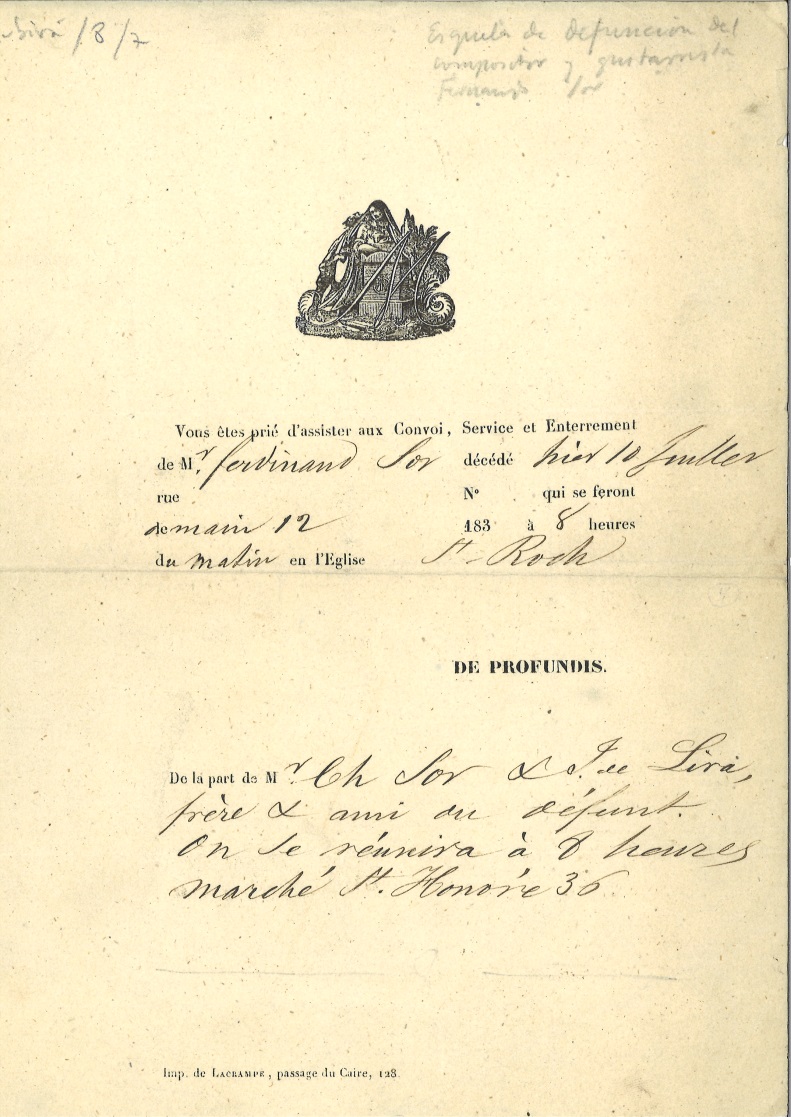 /8/7
Esquela de defunción del
compositor y guitarrista
Fernando Sor
Vous êtes prié d'assister aux Convoi, Service et Enterrement
de Mr. ferdinand Sor décédé hier 10 Juillet
rue N° qui se feront
demain 12 183 à 8 heures
du matin en l'Eglise St-Roch
DE PROFUNDIS.
De la part de Mr Ch Sor & J. de Lira,
frère & ami du défunt.
On se réunira à 8 heures
marché St. Honoré 36
Imp. de LACRAMPE, passage du Caire, 128.